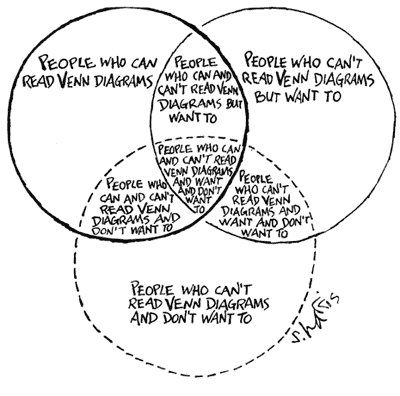 PEOPLE WHO CAN
READ VENN DIAGRAMS
PEOPLE
WHO CAN AND
CAN'T READ VENN
DIAGRAMS BUT
WANT TO
PEOPLE WHO CAN'T
READ VENN DIAGRAMS
BUT WANT TO
PEOPLE WHO CAN
AND CAN'T READ
VENN DIAGRAMS
AND WANT
AND DON'T
WANT
TO
PEOPLE WHO
CAN AND CAN'T
READ VENN
DIAGRAMS AND
DON'T WANT TO
PEOPLE
WHO CAN'T
READ VENN
DIAGRAMS AND
WANT AND DON'T
WANT TO
PEOPLE WHO CAN'T
READ VENN DIAGRAMS
AND DON'T WANT TO
S. HARRIS